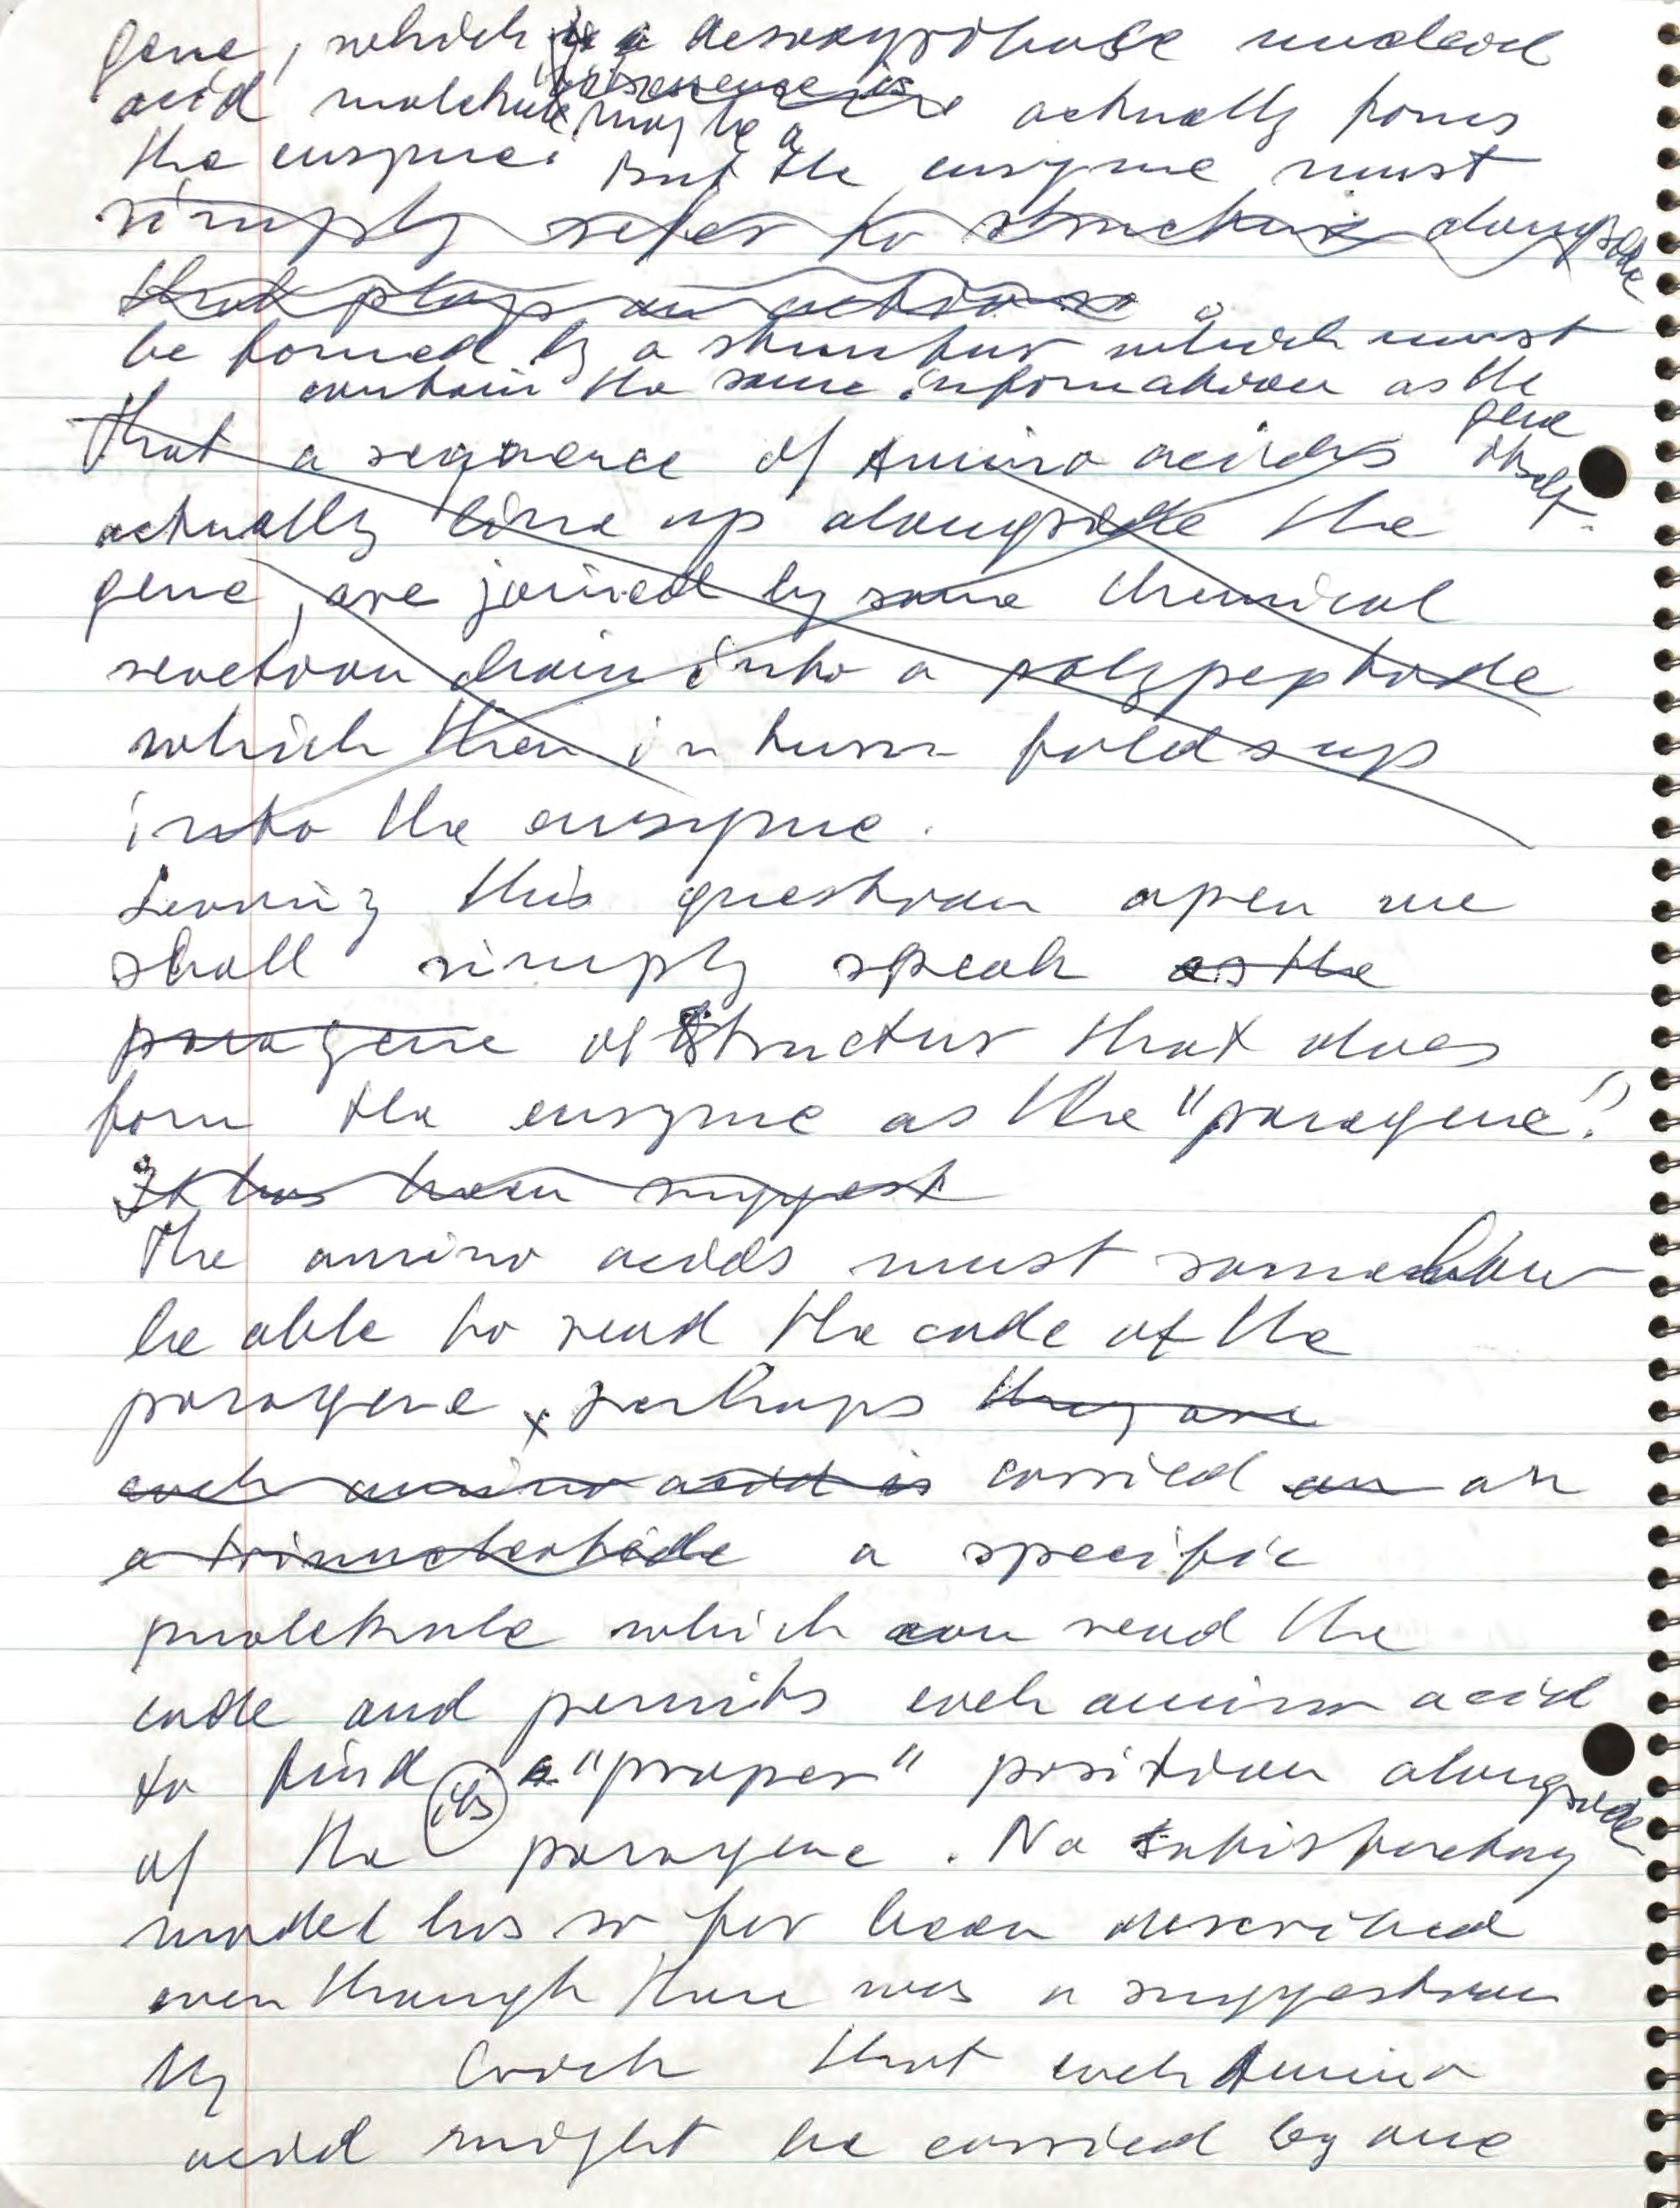 gene, which is a desoxyribose nucleid
acid molekule may be a actually forms
the enzyme. But the enzyme must
simply refer to structure alongside
that plays an
be formed by a structur which must
contain the same information as the
gene itself.
that a sequence of Amino acids
actually line up alongside the
gene, are joined by some chemical
reaction chain into a polypeptide
which then in turn folds up
into the enzyme.
Leaving this question open we
shall simply speak as the
paragene of structur that does
form the enzyme as the "paragene".
It has been suggest
The amino acids must somehow
be able to read the code of the
paragene, perhaps they are
each amino acid is carried on an
a trinucleotide a specific
molekule which can read the
code and permits each amino acid
to find its a "proper" position alongside
of the paragene. No satisfactory
model has so far been described
even though there was a suggestion
by Crick that each Amino
acid might be carried by one